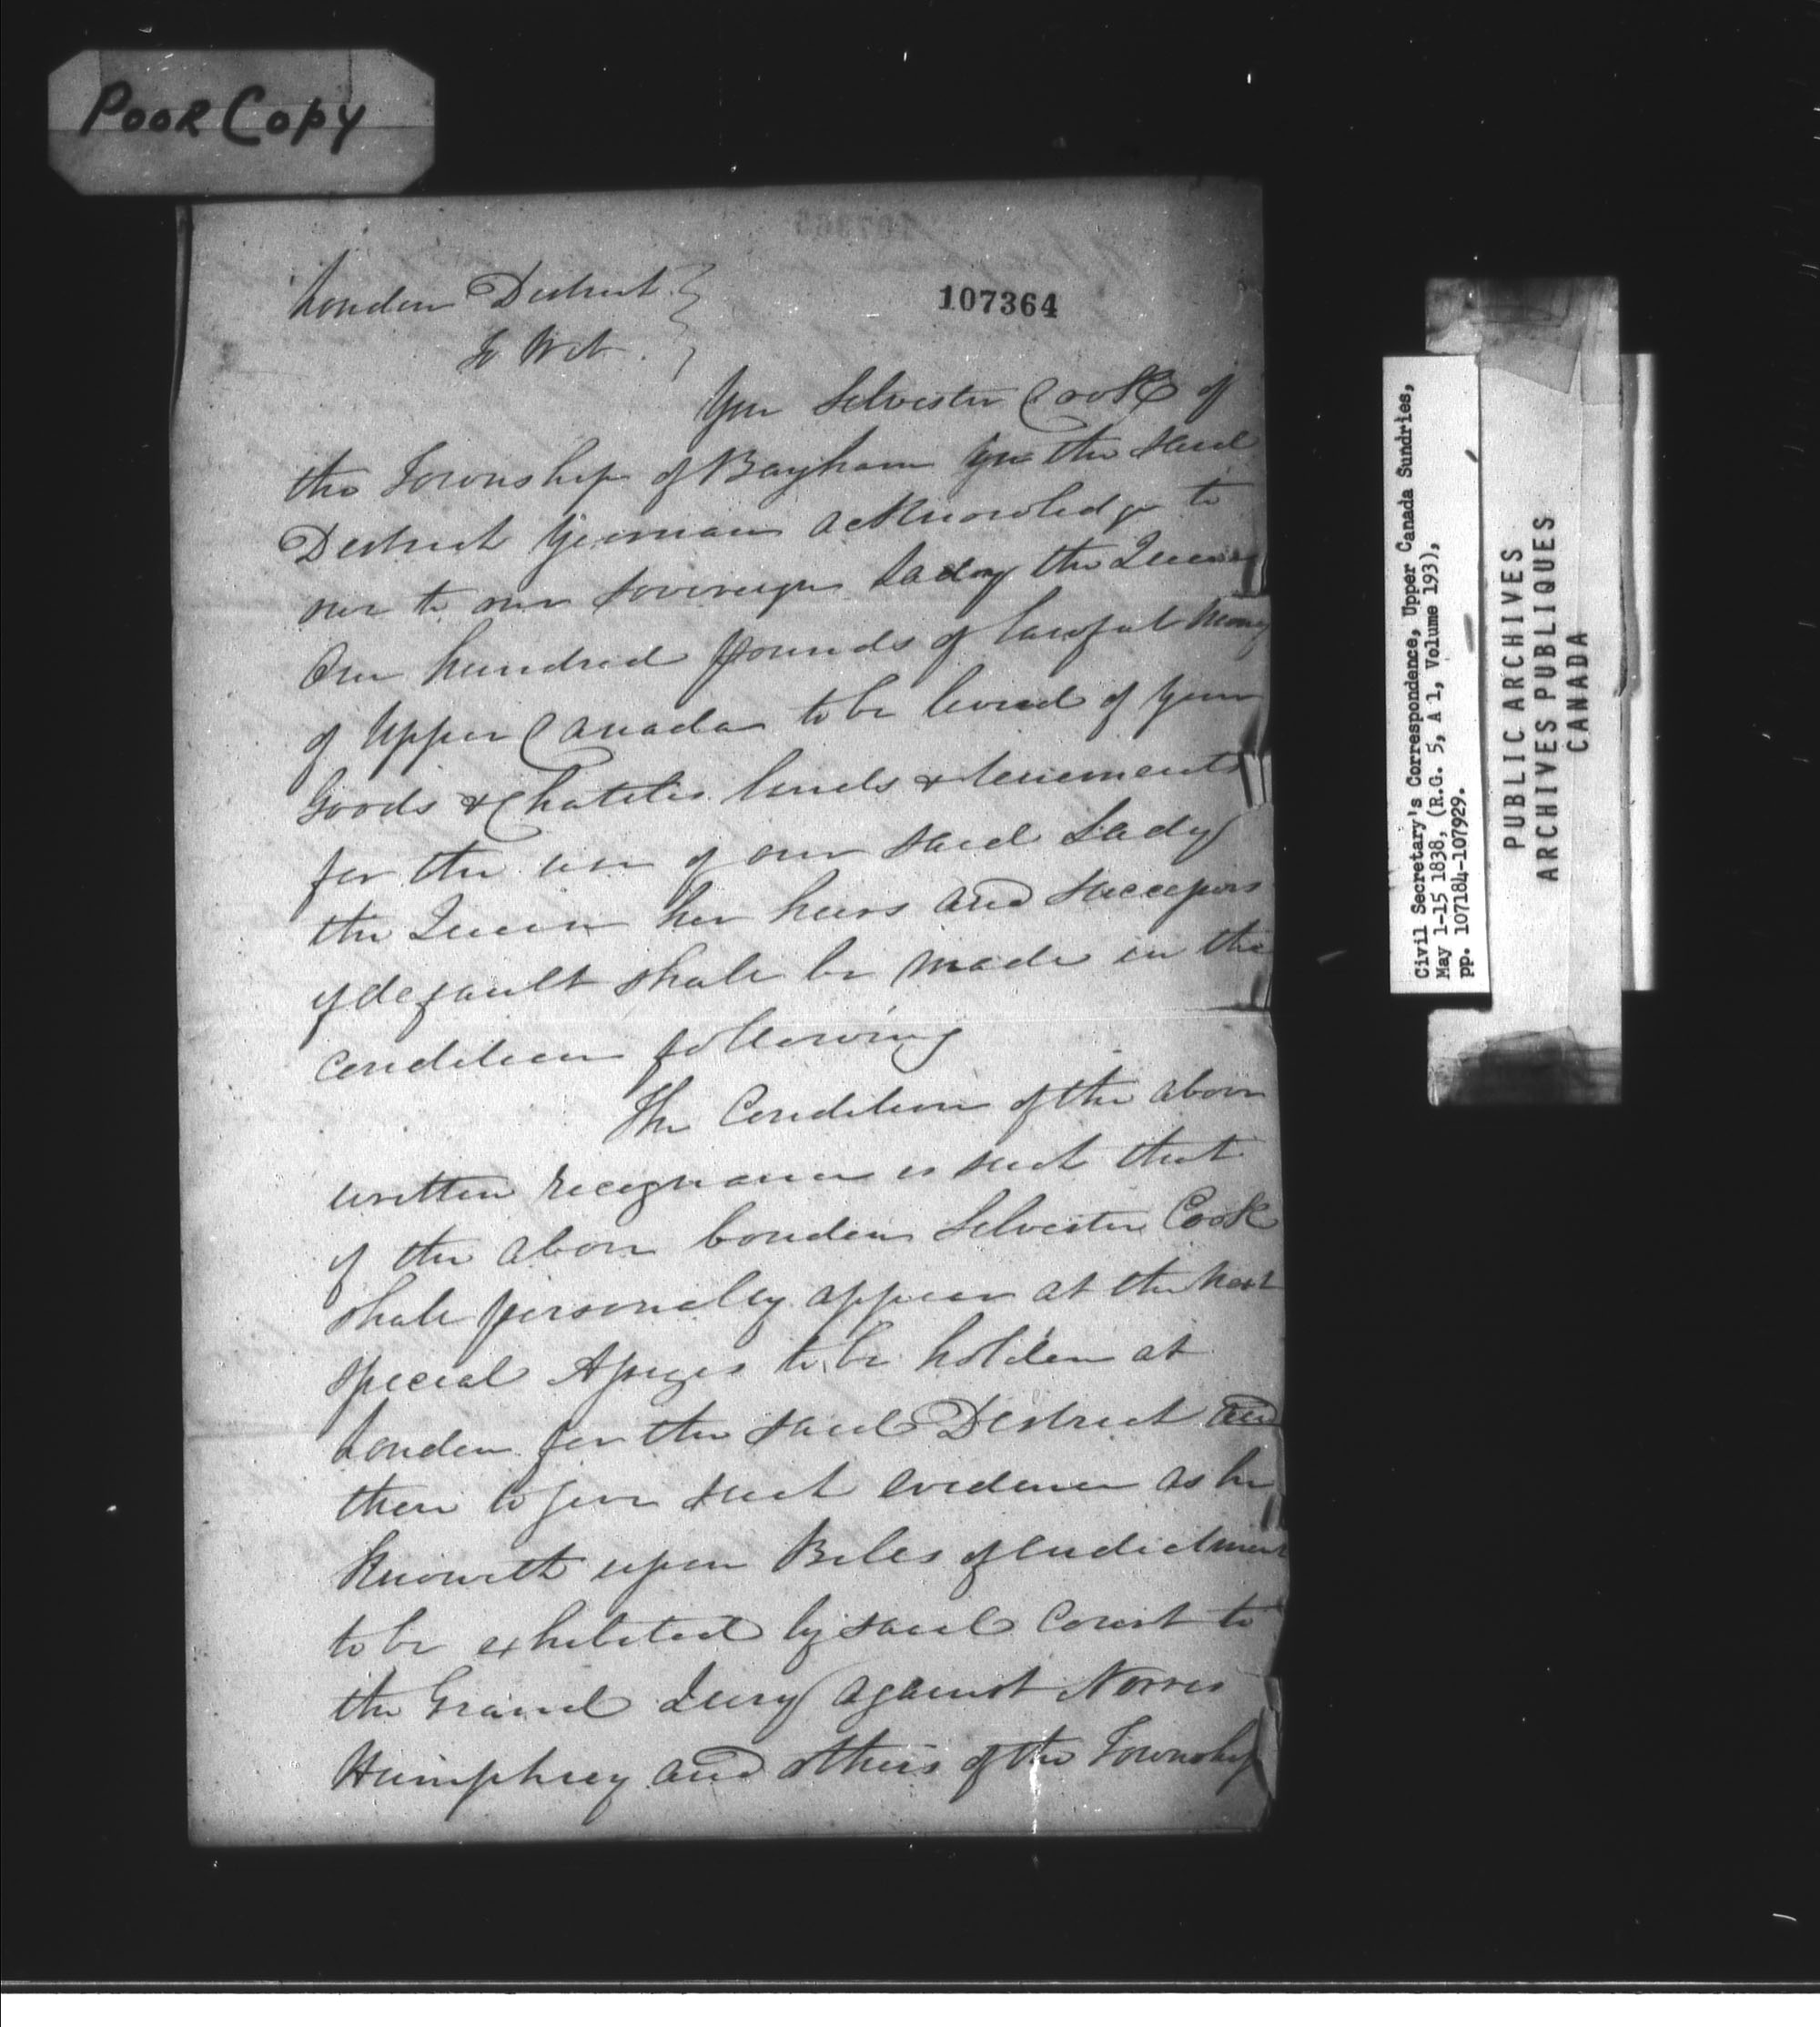 Poor Copy
107364
London District }
To Wit. }
You Silvester Cook of
the Township of Bayham In the said
District Yeoman acknowledge to
owe to our Sovereign Lady the Queen
One hundred pounds of lawful Money
of Upper Canada to be levied of your
Goods & Chattels lands & tenements
for the use of our said Lady
the Queen her heirs and successors
if default shall be made in the
condition following
The Condition of the above
written recognance is such that
if the above bounden Silvester Cook
shall personally appear at the next
special Assizes to be holden at
London for the said District and
there to give such evidence as he
Knoweth upon Bills of Indictment
to be exhibited by said Court to
the Grand Jury against Norris
Humphrey and others of the Township
Civil Secretary's Correspondence, Upper Canada Sundries,
May 1-15 1838, (R.G. 5, A 1, Volume 193),
pp. 107184-107929.
PUBLIC ARCHIVES
ARCHIVES PUBLIQUES
CANADA